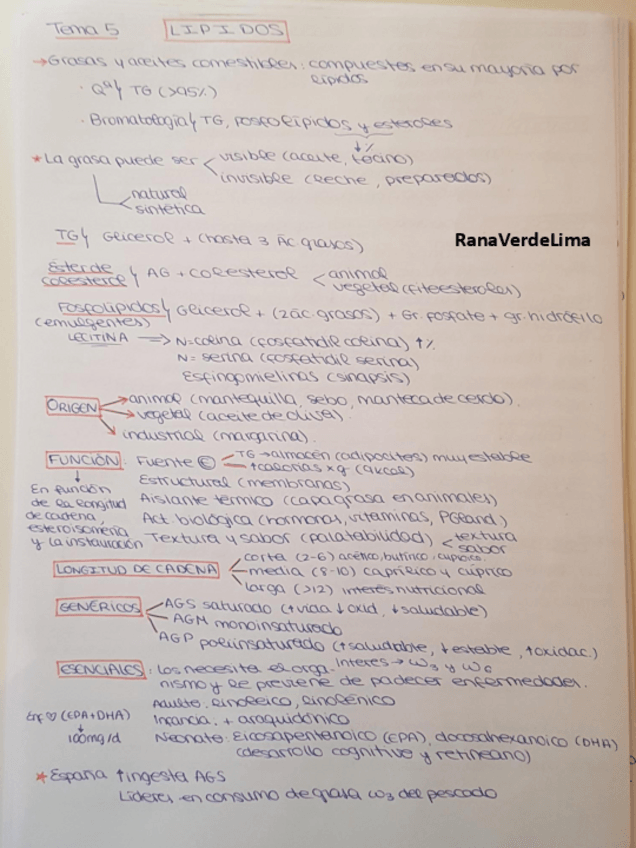 Tema 5 LIPIDOS
→Grasas y aceites comestibles: compuestos en su mayoría por
lípidos
· Qª/ TG (>95%)
· Bromatología/ TG, fosfolípidos y esteroles
↓%
* La grasa puede ser < visible (aceite, tocino)
invisible (leche, preparados)
natural
sintética
TG/ Glicerol + (hasta 3 Ác grasos)
RanaVerdeLima
Éster de
colesterol / AG + colesterol < animal
vegetal (fitoesteroles)
Fosfolípidos/ Glicerol + (2 ác. grasos) + Gr. fosfato + gr. hidrófilo
(emulgentes)
LECITINA ⇒ N=colina (fosfatidil colina) ↑%
N= serina (fosfatidil serina)
Esfingomielinas (sinapsis)
ORIGEN → animal (mantequilla, sebo, manteca de cerdo).
→ vegetal (aceite de oliva).
industrial (margarina).
FUNCIÓN: Fuente Ⓔ < TG → almacén (adipocitos) muy estable
↑ calorías x g (9kcal)
Estructural (membranas)
En función
de la longitud
de cadena,
esteroisomería
y la instauración
Aislante térmico (capa grasa en animales)
Act. biológica (hormonas, vitaminas, PGland.)
Textura y sabor (palatabilidad) < textura
sabor
LONGITUD DE CADENA corta (2-6) acético, butírico,
media (8-10) caprílico y cúprico
larga (>12) interés nutricional
GENÉRICOS AGS saturado (↑vida ↓oxid, ↓saludable)
AGM monoinsaturado
AGP poliinsaturado (↑saludable, ↓estable, ↑oxidac.)
ESENCIALES: Los necesita el orga- Interés → ω3 y ω6
nismo y le previene de padecer enfermedades.
Adulto: linoleico, linolénico
Enf ♡ (EPA+DHA)
↓
100mg/d
Infancia: + araquidónico
Neonato: Eicosapentanoico (EPA), docosahexanoico (DHA)
(desarrollo cognitivo y retineano)
* España ↑ingesta AGS
Líderes en consumo de grasa ω3 del pescado